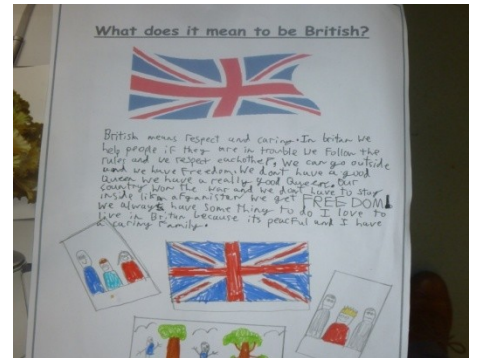 What does it mean to be British?
British means respect and caring. In britan we
help people if they are in trouble we follow the
rules and we respect eachother, we can go outside
and we have freedom. We dont have a good
Queen we have a really good Queen. Our
country won the war and we dont have to stay
inside like afganistan we get FREEDOM!
we always have some thing to do I love to
live in Britan because its peaceful and I have
a caring family.